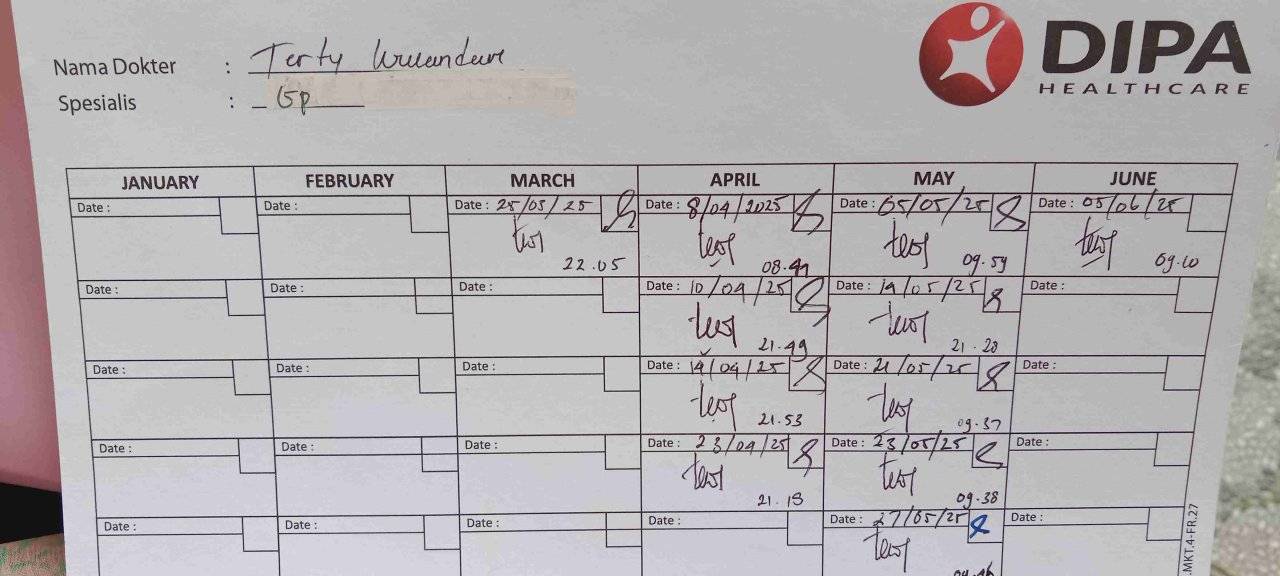 DIPA
HEALTHCARE
Nama Dokter : Terty
Spesialis : Gp
JANUARY FEBRUARY MARCH APRIL MAY JUNE
Date : Date : Date : 25/03/25 Date : 8/04/2025 Date : 05/05/25 Date : 05/06/25
22.05 08.41 09.59 09.10
Date : Date : Date : Date : 10/04/25 Date : 14/05/25 Date :
21.49 21.28
Date : Date : Date : Date : 14/04/25 Date : 21/05/25 Date :
21.53 09.37
Date : Date : Date : Date : 23/04/25 Date : 23/05/25 Date :
21.19 09.38
Date : Date : Date : Date : Date : 27/05/25 Date :
.MKT.4-FR.27